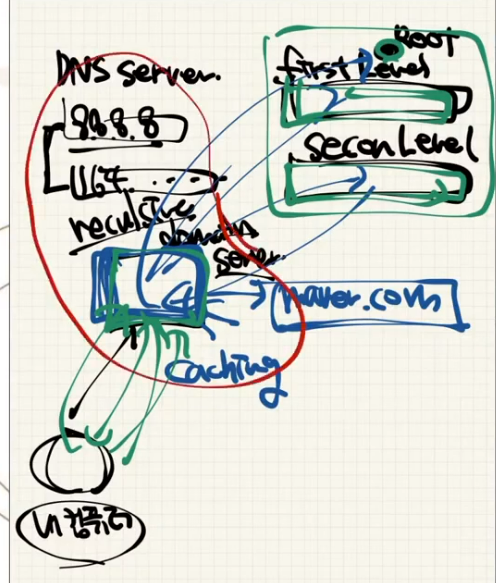 DNS server.
8.8.8.8
164. . . .
recursive
domain
server.
Root
first Level
secon Level
naver.com
caching
내 컴퓨터